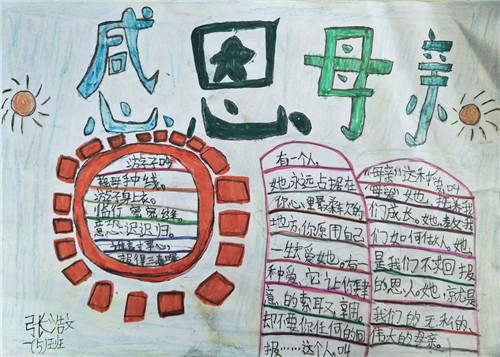 感恩母亲
游子吟
慈母手中线。
游子身上衣。
临行密密缝。
意恐迟迟归。
谁言寸草心。
报得三春晖
有一个人。
她永远占据在
你心里最柔软的
地方，你愿用自己
一生去爱她。有
种爱，它让你肆
意的索取、享用，
却不要你任何的回
报……这个人，叫
"母亲"这种爱，叫
"母爱"她，抚养我
们成长。她，教我
们如何做人。她，
是我们不求回报
的恩人。她，就是
我们的无私的、
伟大的母亲。
张浩文
(5)班